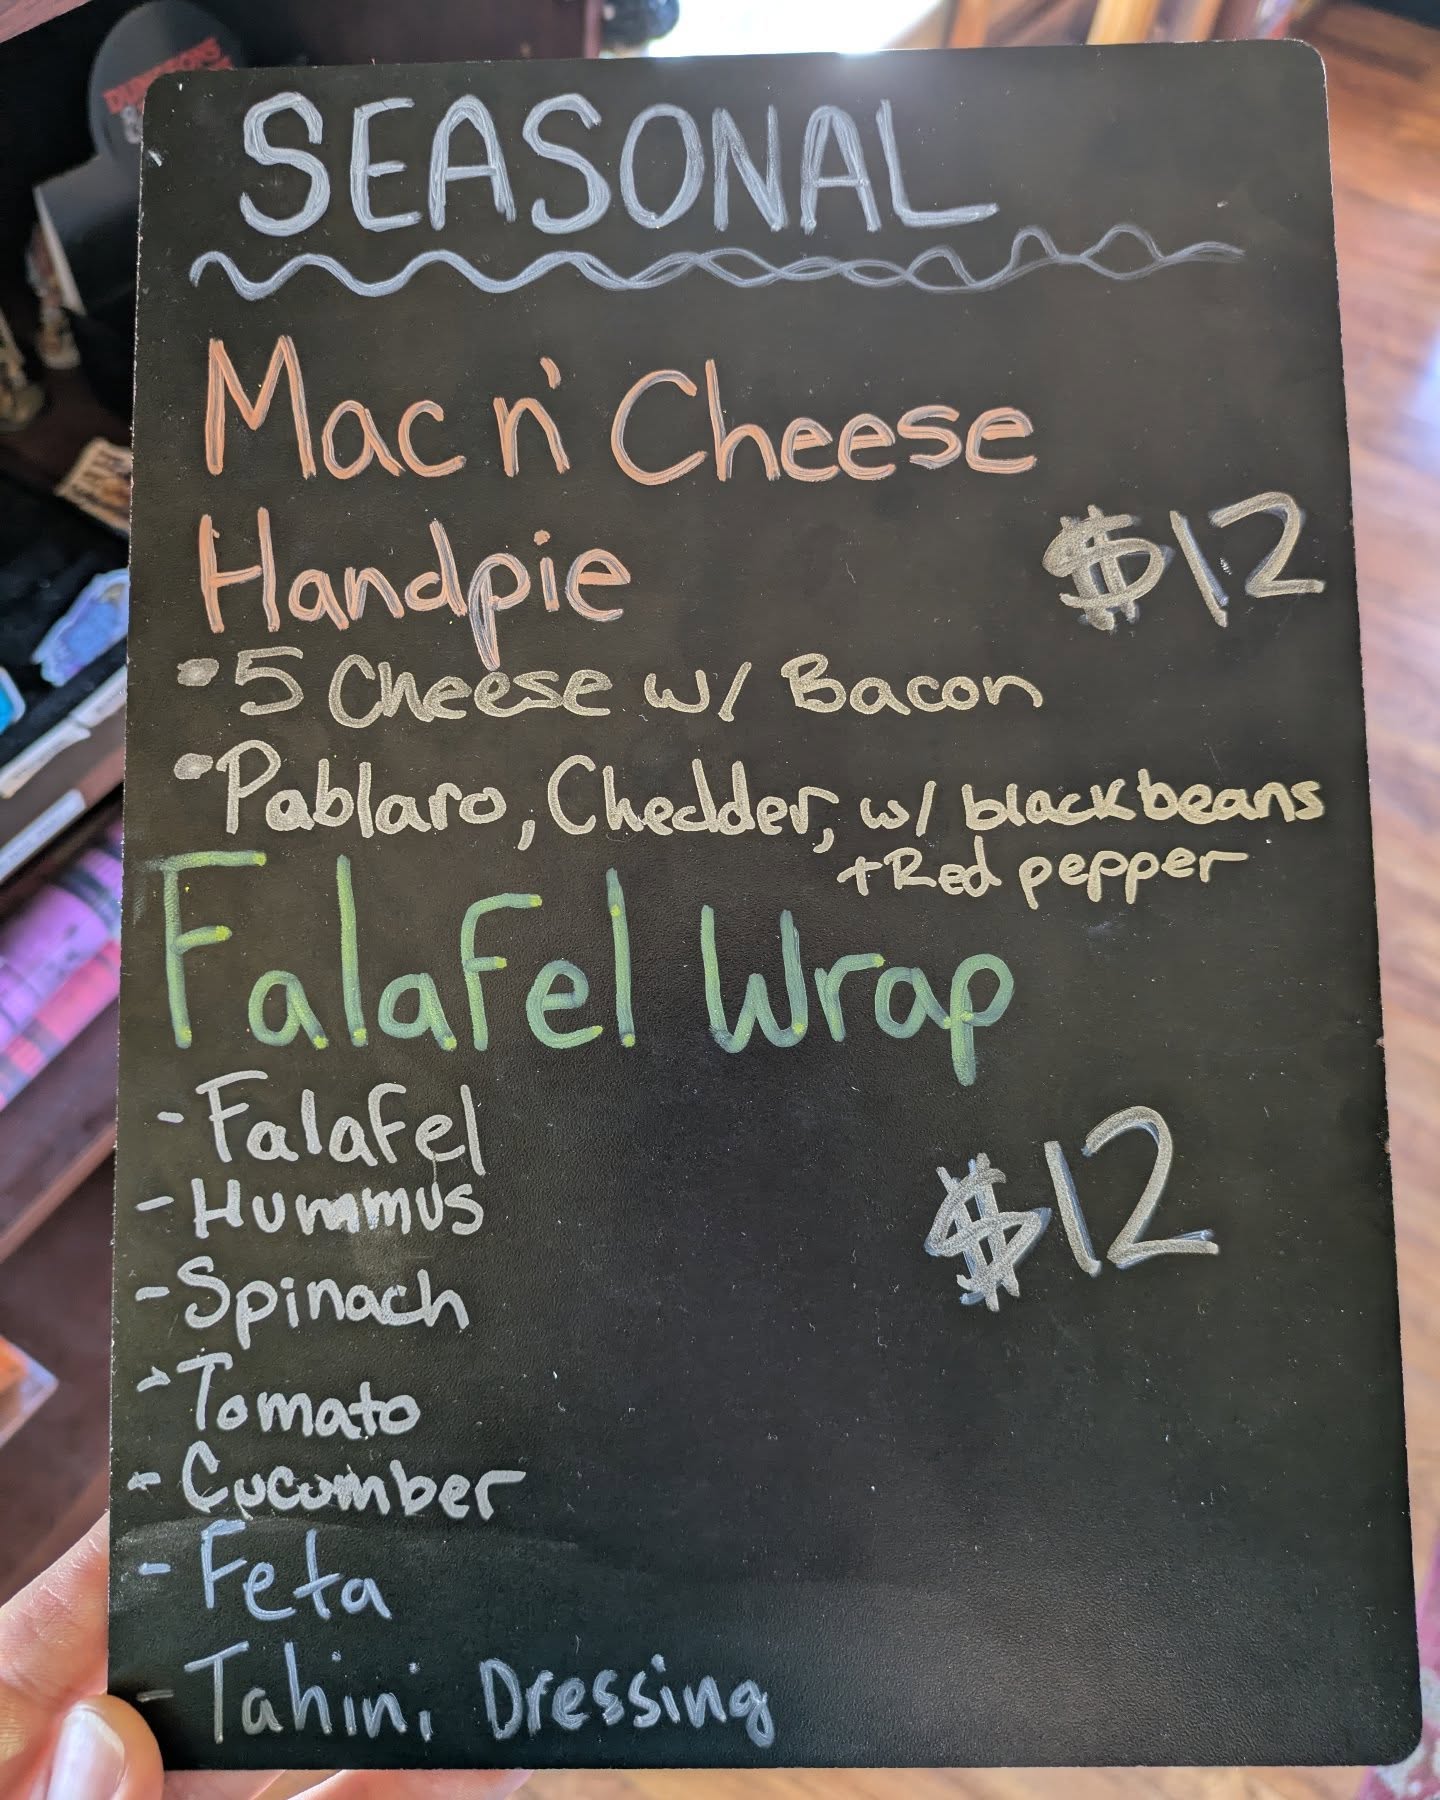 DUNGEONS
SEASONAL
Mac n' Cheese
Handpie
$12
• 5 Cheese w/ Bacon
• Pablaro, Chedder, w/ black beans
+ Red pepper
Falafel Wrap
- Falafel
- Hummus
- Spinach
- Tomato
- Cucumber
- Feta
- Tahini Dressing
$12